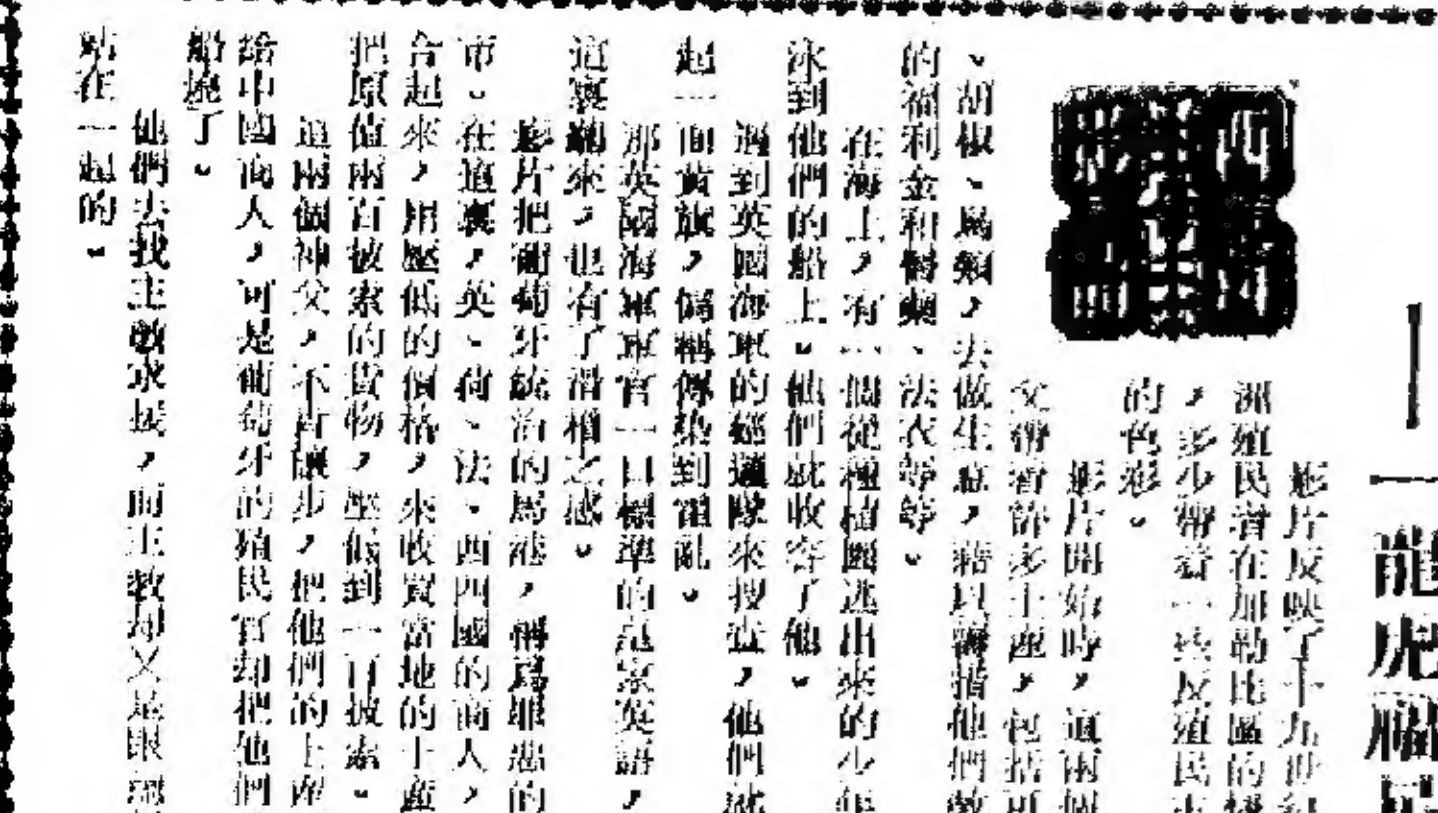 龍虎
影片反映了十九世紀
洲殖民者在加勒比區的
，多少帶着一些反殖民主
的色彩。
影片開始時，這兩個
文帶着許多土產，包括可
、胡椒、馬類，去做生意，藉以籌措他們教
的福利金和餐、法衣等等。
在海上，有一個從種植園逃出來的少年
泳到他們的船上。他們就收容了他。
遇到英國海軍的巡邏隊來搜查，他們就
起一面黃旗，偽稱傳染到霍亂。
那英國海軍軍官一口標準的皇家英語，
這裏聽來，也有了滑稽之感。
影片把葡萄牙統治的馬港，稱爲罪惡的
市。在這裏，英、荷、法、西四國的商人，
合起來，用壓低的價格，來收買當地的土產
把原值兩百披索的貨物，壓低到一百披索。
這兩個神父，不肯讓步，把他們的土產
給中國商人，可是葡萄牙的殖民官却把他們
船燒了。
他們去找主教求援，而主教却又是跟
站在一起的。